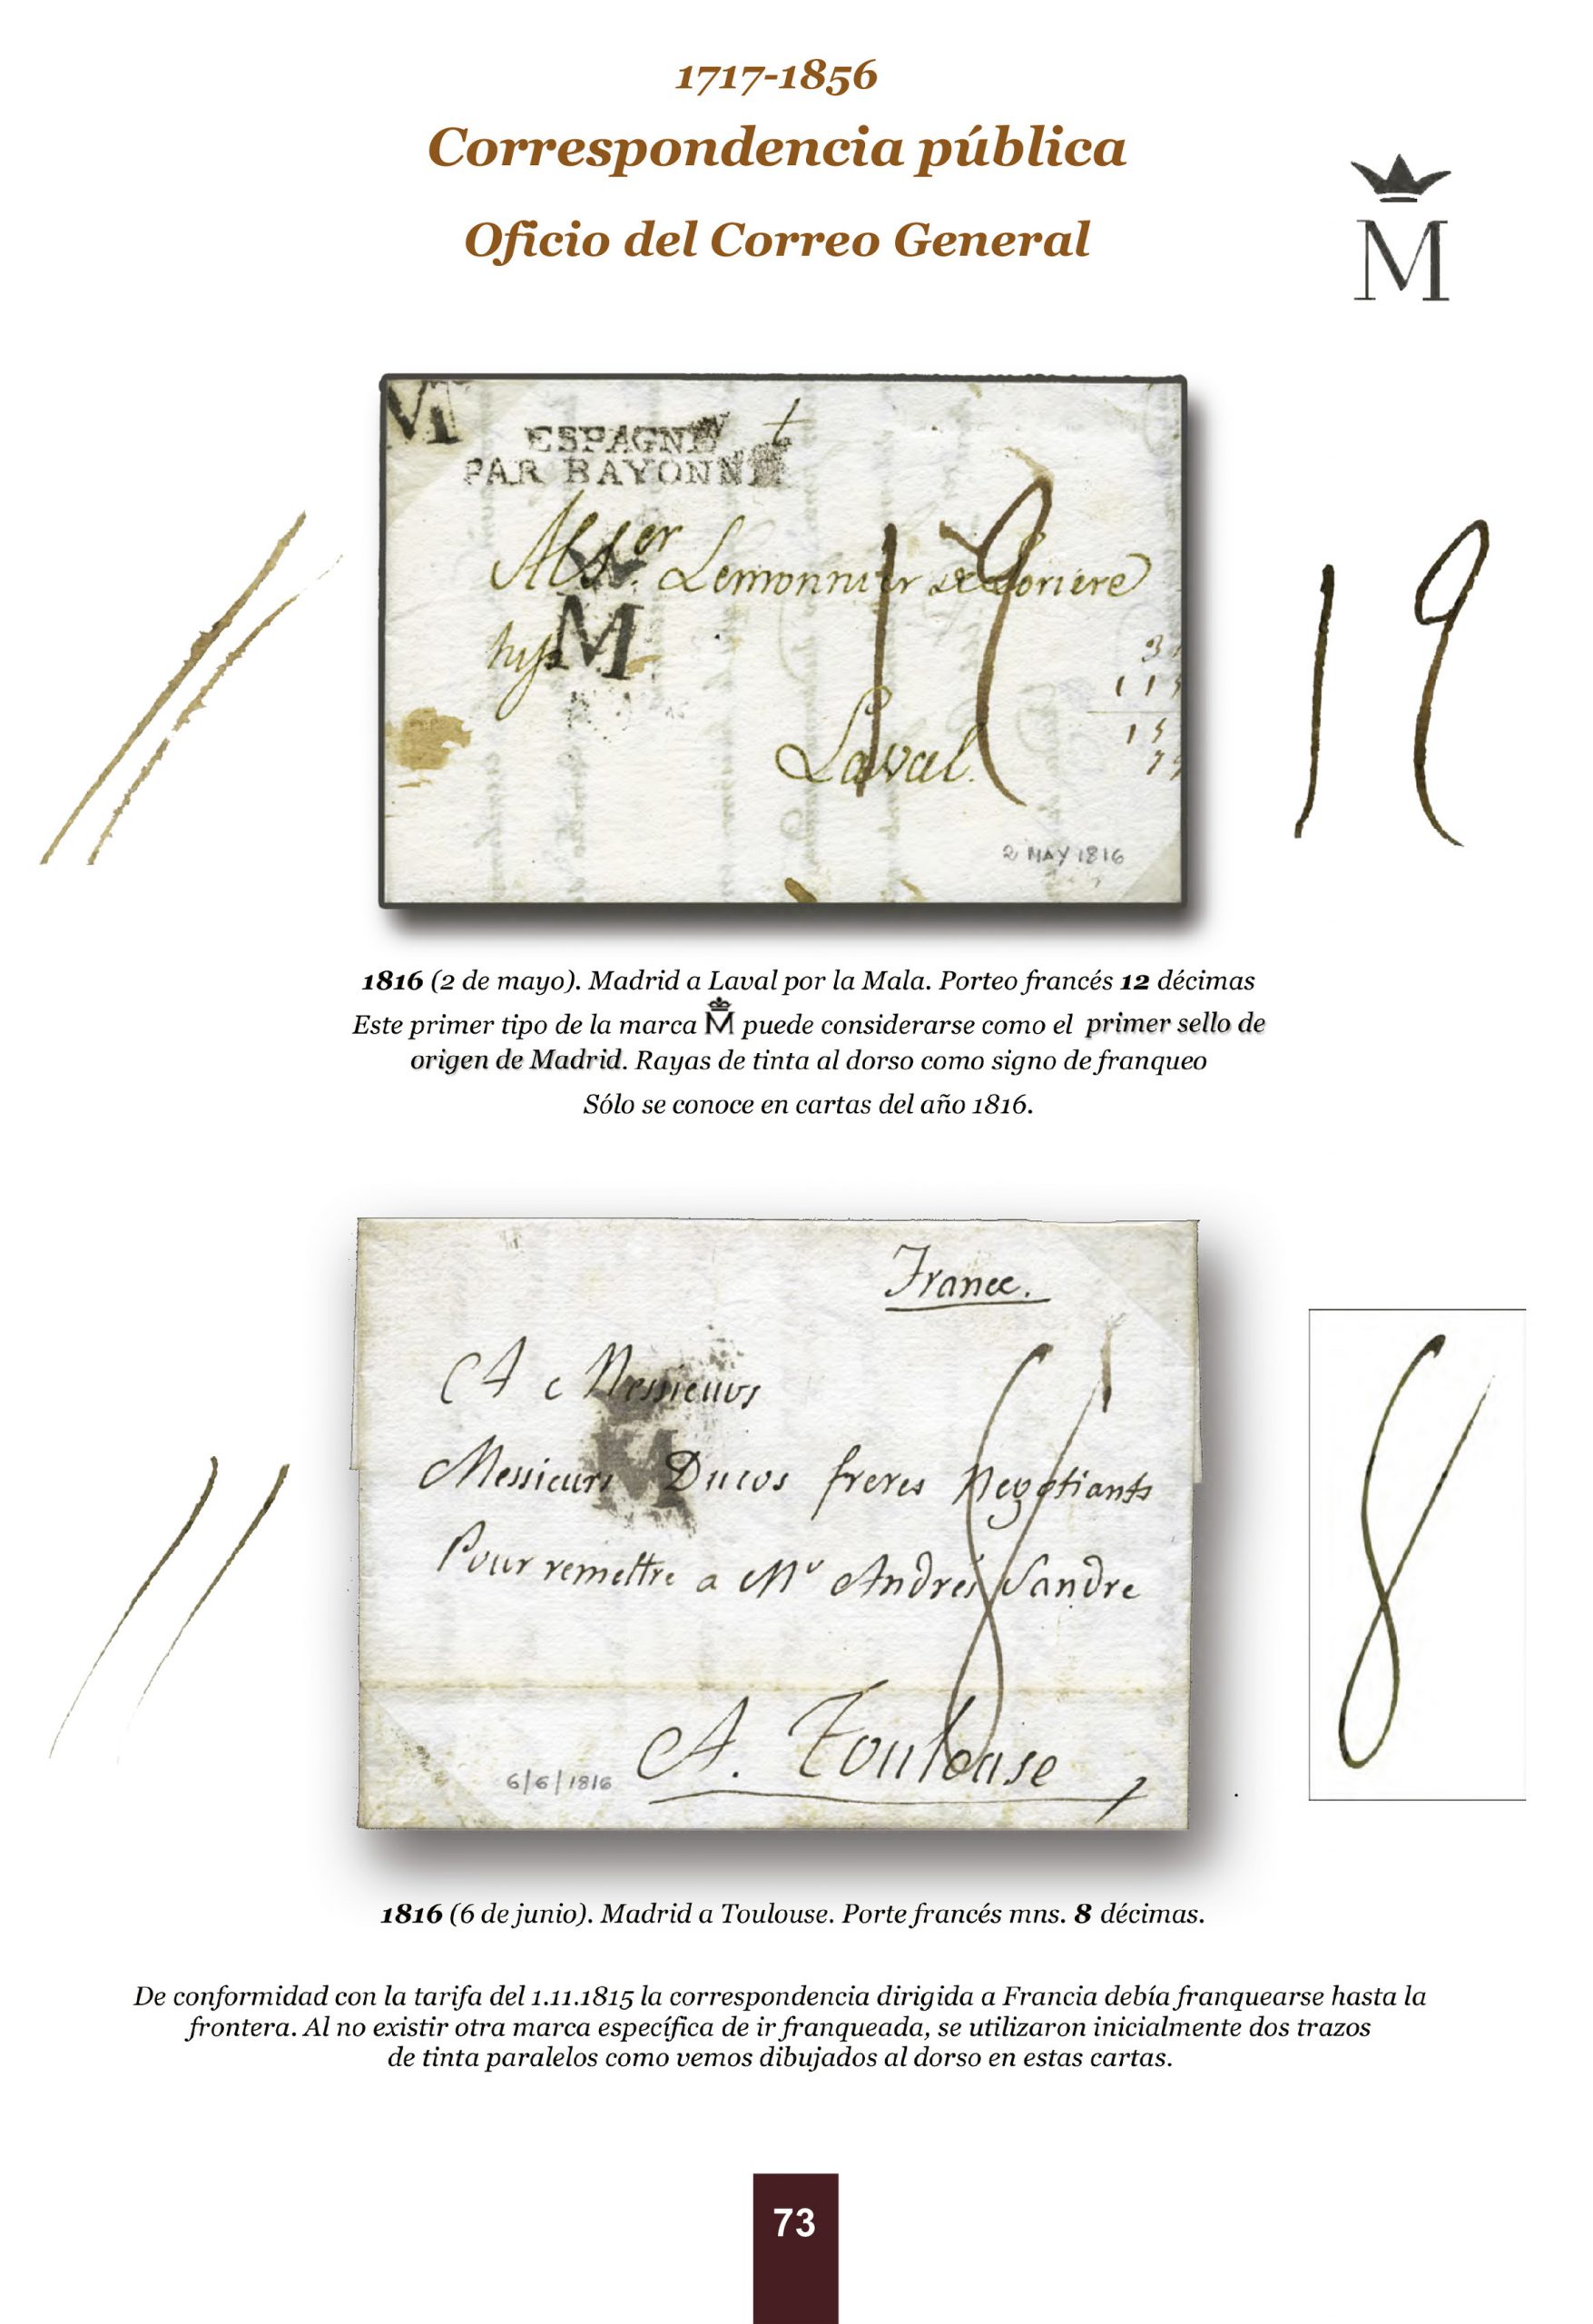 1717-1856
Correspondencia pública
Oficio del Correo General
M
M
ESPAGNE
PAR BAYONNE
Lemonnier
M
Laval.
19
2 MAY 1816
19
1816 (2 de mayo). Madrid a Laval por la Mala. Porteo francés 12 décimas
Este primer tipo de la marca M puede considerarse como el primer sello de
origen de Madrid. Rayas de tinta al dorso como signo de franqueo
Sólo se conoce en cartas del año 1816.
France.
A Messieurs
Messieurs Ducos freres Negotiants
Pour remettre a Mr Andrés Sandre
A. Toulouse
8
6/6/1816
8
1816 (6 de junio). Madrid a Toulouse. Porte francés mns. 8 décimas.
De conformidad con la tarifa del 1.11.1815 la correspondencia dirigida a Francia debía franquearse hasta la
frontera. Al no existir otra marca específica de ir franqueada, se utilizaron inicialmente dos trazos
de tinta paralelos como vemos dibujados al dorso en estas cartas.
73